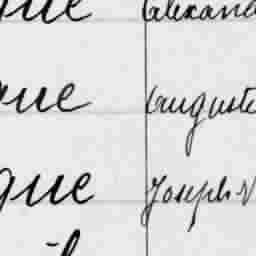 que Alexand
que Auguste
que Joseph-V